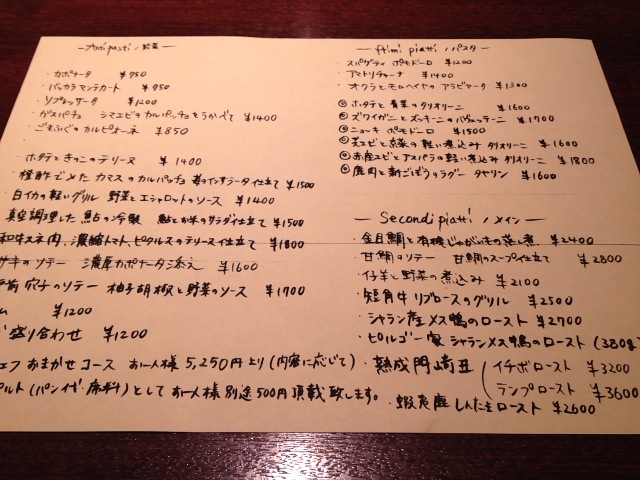 Antipasti / 前菜
・カポナータ ¥950
・バッカラマンテカート ¥950
・ソプレッサータ ¥1200
・ガスパチョ シマエビのカルパッチョをうかべて ¥1400
・ごまふぐのカルピオーネ ¥850
・ホタテときのこのテリーヌ ¥1400
・桜酢でしめたカマスのカルパッチョ 苺のインサラータ仕立て ¥1500
白イカの軽いグリル 野菜とエシャロットのソース ¥1400
真空調理した鮎の冷製 鮎とお米のサラダ仕立て ¥1500
和牛スネ肉、濃縮トマト、ピクルスのテリーヌ仕立て ¥1800
サキのソテー 濃厚カポナータ添え ¥1600
前 穴子のソテー 柚子胡椒と野菜のソース ¥1700
ム ¥1200
盛り合わせ ¥1200
ェフおまかせコース お一人様 5,250円より(内容に応じて)
ペルト(パン代・席料)として お一人様別途500円頂戴致します。
Primi piatti / パスタ
・スパゲティ ポモドーロ ¥1200
・アマトリチャーナ ¥1400
・オクラとモロヘイヤのアラビアータ ¥1300
◎ホタテと青菜のタリオリーニ ¥1600
◎ズワイガニとズッキーニのパヴェッティーニ ¥1700
◎ニョッキ ポモドーロ ¥1500
◎芝エビと京菜の軽い煮込み タリオリーニ ¥1600
◎赤座エビとアスパラの軽い煮込み タリオリーニ ¥1800
◎鹿肉と新ごぼうのラグー タヤリン ¥1600
Secondi piatti / メイン
・金目鯛と有機じゃがいもの蒸し煮 ¥2400
・甘鯛のソテー 甘鯛のスープ仕立て ¥2800
・仔羊と野菜の煮込み ¥2100
・短角牛リブロースのグリル ¥2500
・シャラン産メス鴨のロースト ¥2700
・ビルゴー家シャランメス鴨のロースト (380g
・熟成門崎丑 イチボロースト ¥3200
ランプロースト ¥3600
・蝦夷鹿 しんたまロースト ¥2600